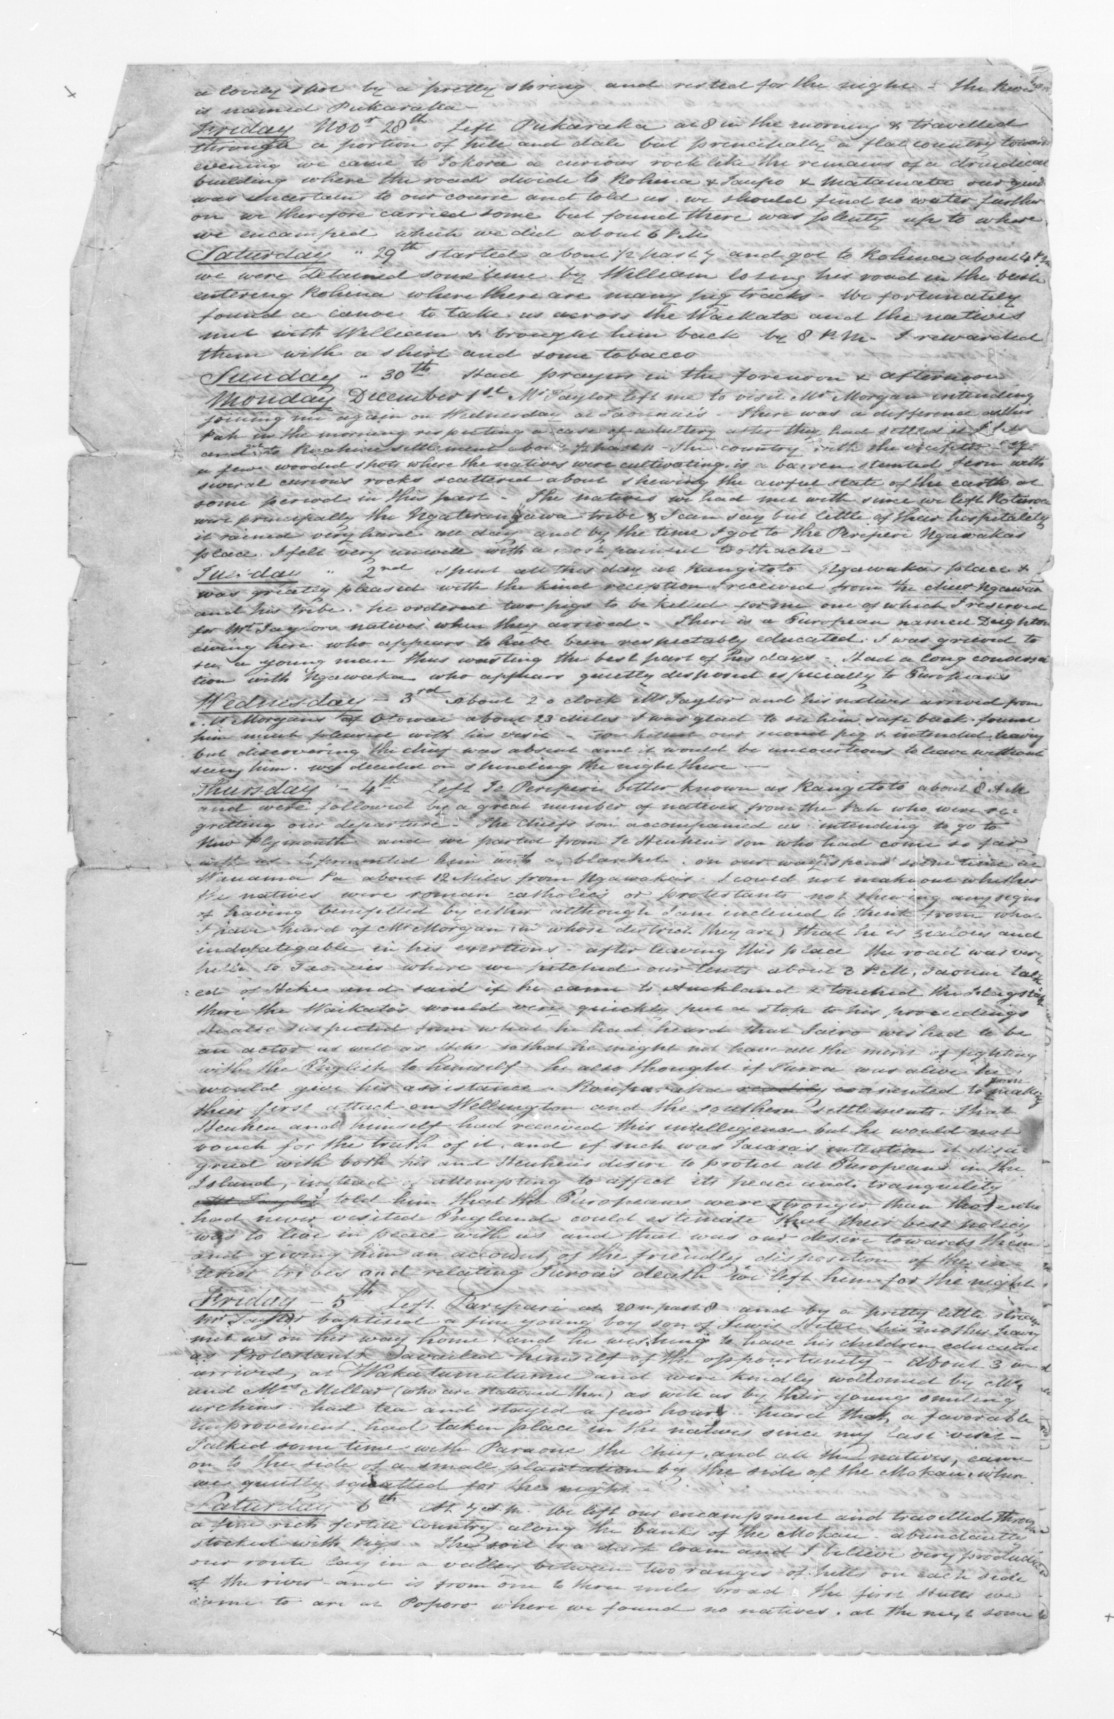 a lovely spot by a pretty spring and rested for the night - the
is named Pukaraka -
Friday Novr 28th Left Pukaraka at 8 in the morning & travelled
through a portion of hill and dale but principally a flat country towards
evening we came to Tokora a curious rock like the remains of a druidical
building where the roads divide to Rohina & Taupo & Matamata our guide
was uncertain to our course and told us we should find no water further
on we therefore carried some but found there was plenty up to where
we encamped which we did about 6 P.M.
Saturday " 29th started about 1/2 past 7 and got to Rohina about 4 P.M
we were detained some time by William losing his road in the bush
entering Rohina where there are many pig tracks - We fortunately
found a canoe to take us across the Waikato and the natives
met with William & brought him back by 8 P.M. - I rewarded
them with a shirt and some tobacco
Sunday " 30th Had prayers in the forenoon & afternoon
Monday December 1st Mr Taylor left me to visit Mr Morgan intending
joining me again on Wednesday at - There was a difference at this
Pah in the morning respecting a case of after they had settled it
and to settlement about 1/2 past 4 - the country with the exception of
a few wooded spots where the natives were cultivating is a barren stunted fern with
several curious rocks scattered about shewing the awful state of the earth at
some period in this part - The natives we had met with since we left Rotorua
were principally the tribe & I can say but little of their hospitality
it rained very hard all day and by the time I got to the Periperi Ngawakas
place I felt very unwell with a most painful toothache -
Tuesday " 2nd Spent all this day at Rangitoto Ngawakas place &
was greatly pleased with the kind reception I received from the chief Ngawaka
and his tribe. he ordered two pigs to be killed for me one of which I reserved
for Mr Taylors natives when they arrived - There is a European named Deighton
living here who appears to have been respectably educated. I was grieved to
see a young man thus wasting the best part of his days. Had a long conversa
tion with Ngawaka who appears quietly disposed especially to Europeans
Wednesday - 3rd About 2 o clock Mr Taylor and his natives arrived from
Mr Morgans at Otowao about 23 Miles I was glad to see him safe back. found
him much pleased with his visit - our second pig & intended leaving
but discovering the chief was absent and it would be uncourteous to leave without
seeing him. we decided on spending the night there -
Thursday - 4th Left Te Peripere better known as Rangitoto about 8 A.M
and were followed by a great number of natives from the Pah who were re-
gretting our departure - The chiefs son accompanied us intending to go to
New Plymouth and we parted from Te Heuheu's son who had come so far
with us I presented him with a blanket. on our way spent some time at
Wanama Pa about 12 Miles from Ngawaka's. I could not make out whether
the natives were roman catholics or protestants not shewing any signs
of having benefitted by either although I am inclined to think from what
I have heard of Mr Morgan (in whose district they are) that he is zealous and
indefategable in his exertions. after leaving this place the road was very
hilly to where we pitched our tents about 3 P.M. talk
ed of Heke and said if he came to Auckland & touched the flag staff
there the Waikato's would very quickly put a stop to his proceedings
He also suspected from what he had heard that wished to be
an actor as well as Heke so that he might not have all the merit of fighting
with the English to himself - he also thought if Turoa was alive he
would give his assistance - Rauparaha consented to join making
their first attack on Wellington and the southern settlements. that
Heuheu and himself had received this intellegence but he would not
vouch for the truth of it. and if such was intention it disa
greed with both his and Heuheu's desire to protect all Europeans in the
Island, instead of attempting to affect its peace and tranquility
told him that the Europeans were stronger than those who
had never visited England could estimate that their best policy
was to live in peace with us and that was our desire towards them
and giving him an account of the friendly disposition of the in-
terior tribes and relating Turoa's death we left him for the night
Friday - 5th Left Paripari at 20 m past 8 and by a pretty little stream
Mr Taylor baptised a fine young boy son of Lewis his mother having
met us on his way home. and he wishing to have his children educated
as Protestants availed himself of the oppourtunity - about 3 we
arrived at Wakatumutumu and were kindly welcomed by Mr
and Mrs Miller (who are stationed there) as well as by their young smiling
urchins. had tea and stayed a few hours heard that a favorable
improvement had taken place in the natives since my last visit -
Talked some time with Paraone the chief and all the natives, came
on to the side of a small plantation by the side of the Mokau where
we quietly squatted for the night
Saturday - 6th At 7 A.M. We left our encampment and travelled through
a fine rich fertile country along the banks of the Mokau abundantly
stocked with Pigs - The soil is a dark loam and I believe very productive
our route lay in a valley between two ranges of hills on each side
of the river - and is from one to three miles broad the first Hutts we
came to are at Poporo where we found no natives. at the next some